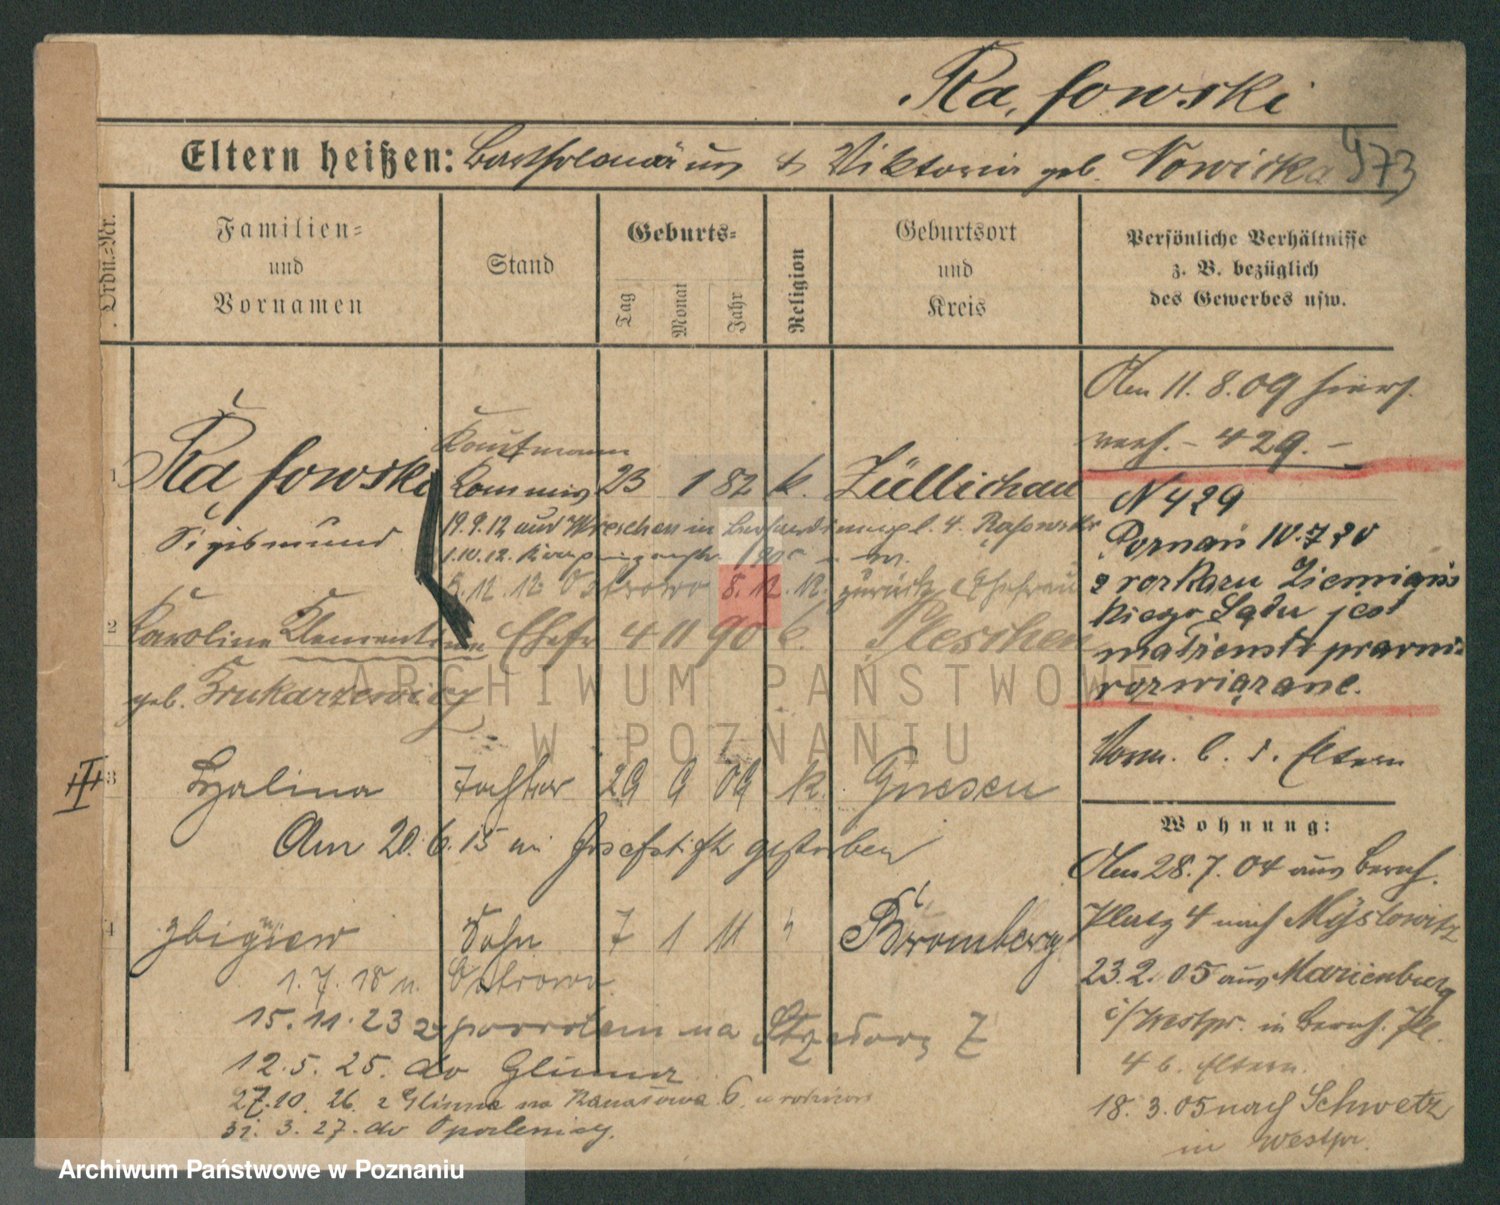 Ra, fowski
Eltern heißen: Bartholomäus & Viktoria geb. Nowicka 973
Ordn.-Nr.
Familien- und Vornamen
Stand
Geburts-
Tag Monat Jahr
Religion
Geburtsort und Kreis
Persönliche Verhältnisse
z. B. bezüglich
des Gewerbes usw.
Am 11. 8. 09
429. —
Kaufmann
1 Ra fowski Kommis 23 1 82 k. Züllichau
Sigismund
19.9.12 aus Wreschen in
1.10.12.
5.12.12 Ostrowo 8.12.12. zurück Ehefrau
2 Karoline Klementine Ehefr 4 11 90 k. Pleschen
geb. Krukarzewicz
N 429
Poznań 10.7.20
z rozkazu Ziemiańs
kiego Sądu jest
małżeństw prawni
rozwiązane.
Vorm. b. d. Eltern
III
3 Halina Tochter 29 9 09 k. Gnesen
Am 20.6.15 im Josefstift gestorben
4 Zbigniew Sohn 7 1 11 " Bromberg
1.7.18 n. Ostrowo
15.11.23 z powrotem na
12.5.25. do Glinna
27.10.26. z Glinna na 6
31.3.27. do Opalenicy.
Wohnung:
Am 28.7.04 aus Bernh.
Platz 4 nach Myslowitz
23.2.05 aus Marienburg
i/Westpr. in Bernh. Pl.
4 b. Eltern.
18.3.05 nach Schwetz
in Westpr.
ARCHIWUM PAŃSTWOWE
W POZNANIU
Archiwum Państwowe w Poznaniu